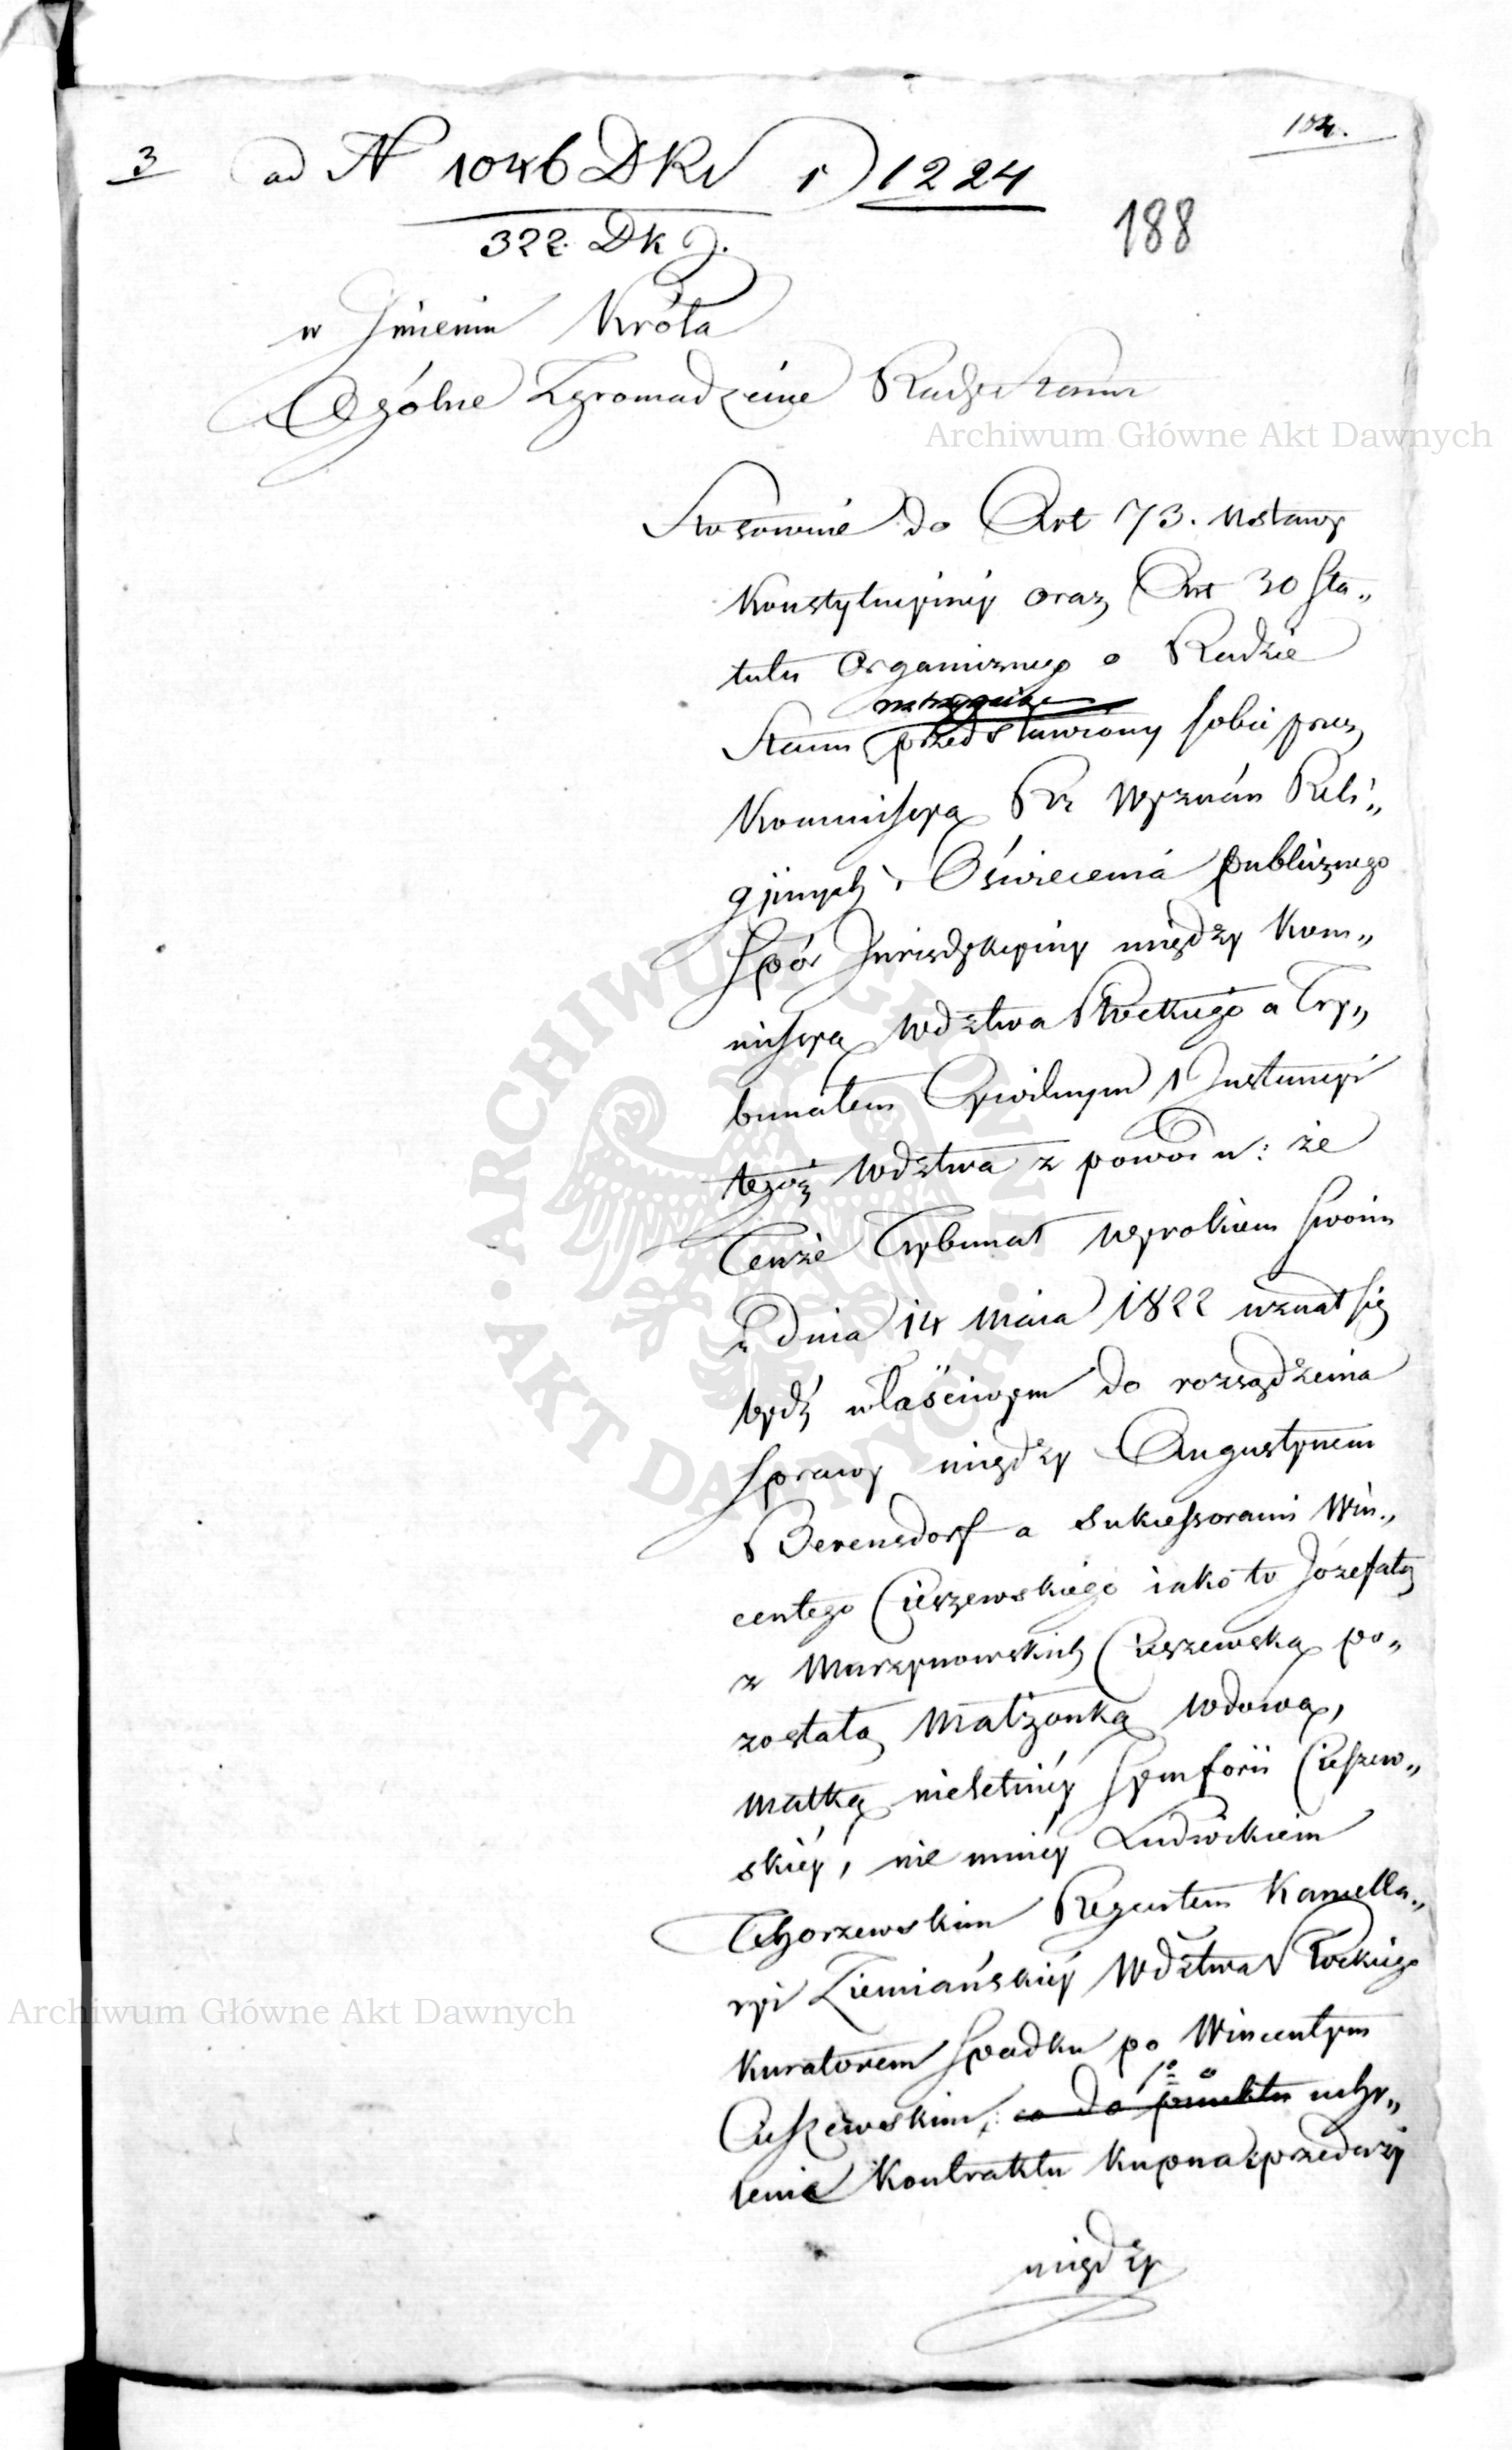 104.
3 ad N 1046 DKr 1224
322. DKJ.
188
w Jmieniu Króla
Ogólne Zgromadzenie Rady Stanu
Archiwum Główne Akt Dawnych
Stosownie do Art 73. Ustawy
Konstytucyiney oraz Art 30 Sta„
tutu Organicznego o Radzie
Stanu przedstawiony sobie przez
Kommissyą Rz Wyznań Reli„
gijnych i Oświecenia publicznego
Spór Jurisdykcyiny między Kom„
missyą Wdztwa Płockiego a Try„
bunałem Cywilnym 1 Instancyi
tegoż Wdztwa z powodu: że
Tenże Trybunał Wyrokiem swoim
z dnia 14 Maia 1822 uznał się
bydź właściwym do rozsądzenia
sprawy między Augustynem
Berensdorf a Sukcessorami Win„
centego Cieszewskiego iako to Józefatą
z Murzynowskich Cieszewską po„
zostałą Małżonką wdową,
matką nieletniéy Symforii Cieszew„
skiéy, nie mniéy Ludwikiem
Tchorzewskim Regentem Kancella„
ryi Ziemiańskiéy Wdztwa Płockiego
Archiwum Główne Akt Dawnych
Kuratorem Spadku po Wincentym
Cieszewskim, co do punktu uchy„
lenia Kontraktu Kupna sprzedaży
między
ARCHIWUM GŁÓWNE · AKT DAWNYCH ·